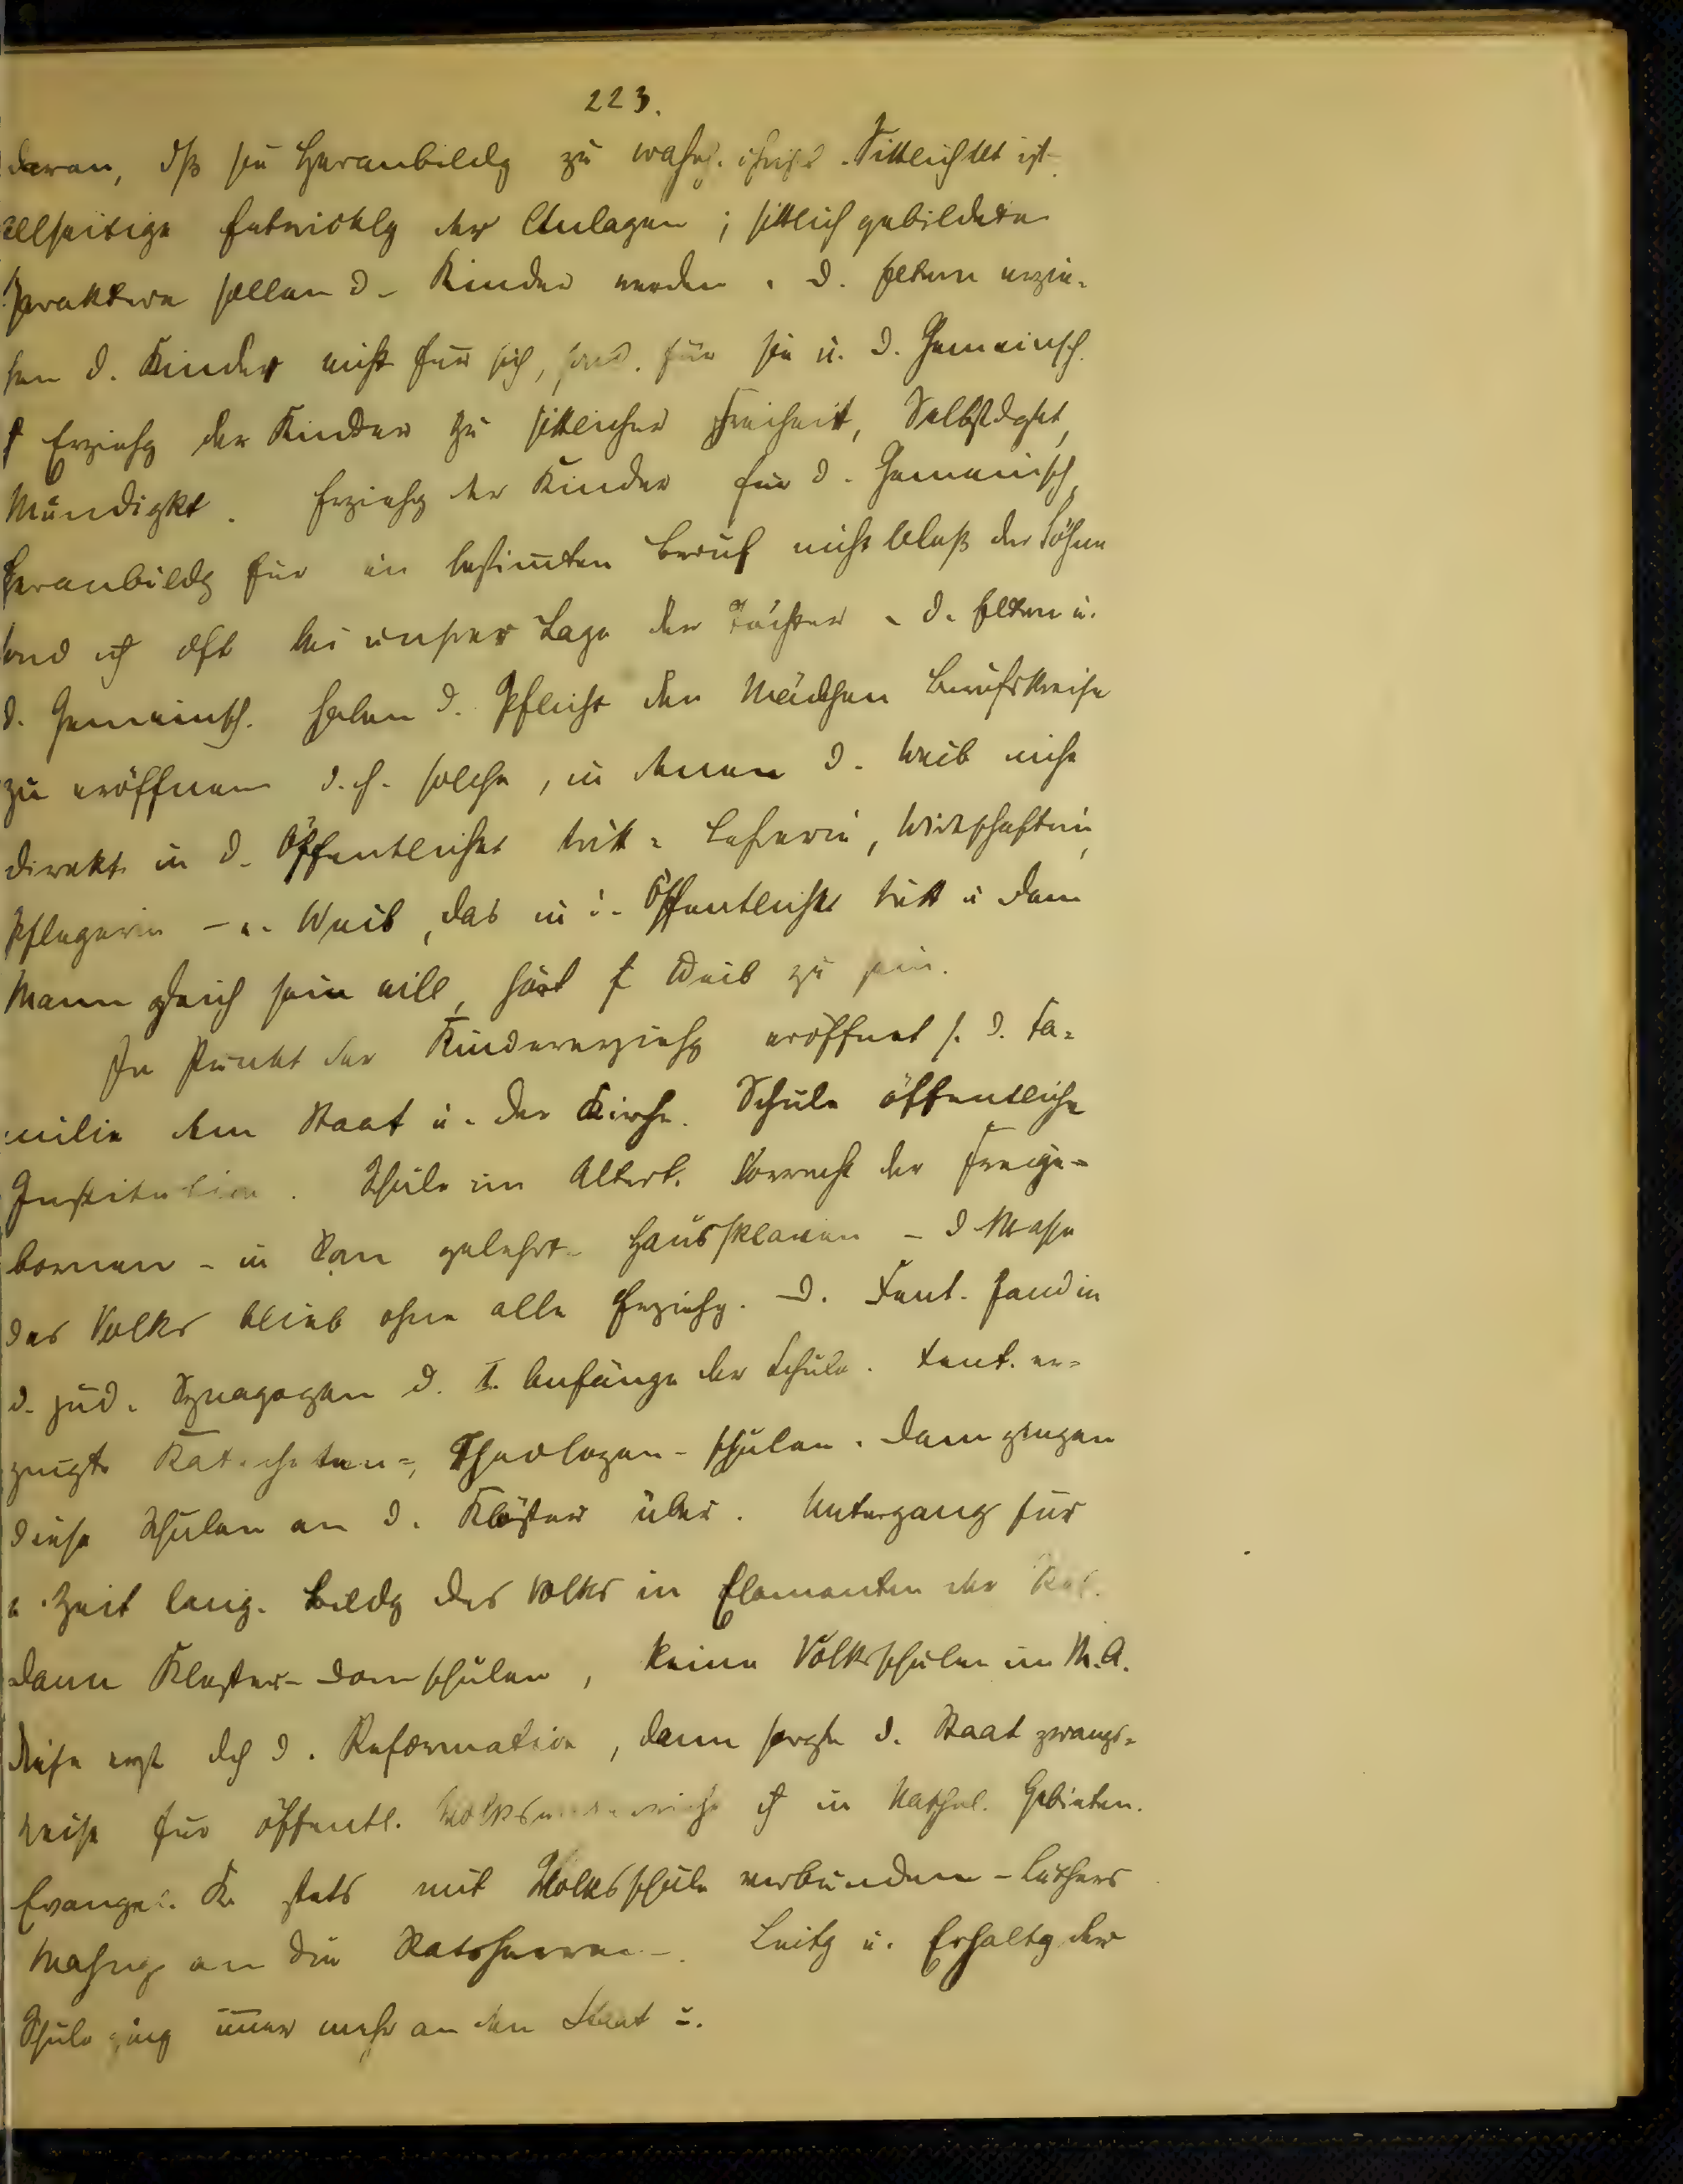 223.
daran, dß sie Heranbildg zu wahrh. christl. Sittlichkt ist
allseitige Entwicklg der Anlagen; sittlich gebildete
Charaktere sollen d. Kinder werden. D. Eltern erzie-
hen d. Kinder nicht für sich, sond. für sie u. d. Gemeinsch.
Erziehg der Kinder zu sittlicher Freiheit, Selbstdgkt,
Mündigkt. Erziehg der Kinder für d. Gemeinsch,
Heranbildg für ein bestim̄ten Beruf nicht bloß der Söhne
sond oft bei unsrer Lage der Töchter. D. Eltern u.
d. Gemeinsch. haben d. Pflicht den Mädchen Berufskreise
zu eröffnen d. h. solche, in denen d. Weib nicht
direkt in d. Öffentlichkt tritt = Lehrerin, Wirtschafterin,
Pflegerin - Weib, das in d. Öffentlichkt tritt u dem
Mann gleich sein will, hört Weib zu sein.
Im Punkt der Kindererziehg eröffnet s. d. Fa-
milie dem Staat u. der Kirche. Schule öffentliche
Institution. Schule im Altert. Vorrecht der Freige-
bornen - in Rom gelehrt. Haussklaven - d Masse
des Volks blieb ohne alle Erziehg. D. fand in
d. jüd. Synagogen d. I. Anfänge der Schule. er-
zeugte Katecheten=, Theologen-schulen. Dann gingen
diese Schulen an d. Klöster über. Untergang für
e. Zeit lang. Bildg des Volks in Elementen der
Dann Kloster- Domschulen, keine Volksschulen im M.A.
diese erst dch d. Reformation, dann sorgte d. Staat zwangs-
weise für öffentl. Volksunterricht in kathol. Gebieten.
Evangel. K. stets mit Volksschule verbunden - Luthers
Mahng an die Ratsherren -. Leitg u. Erhaltg der
Schule ging im̄er mehr an den Staat ü.